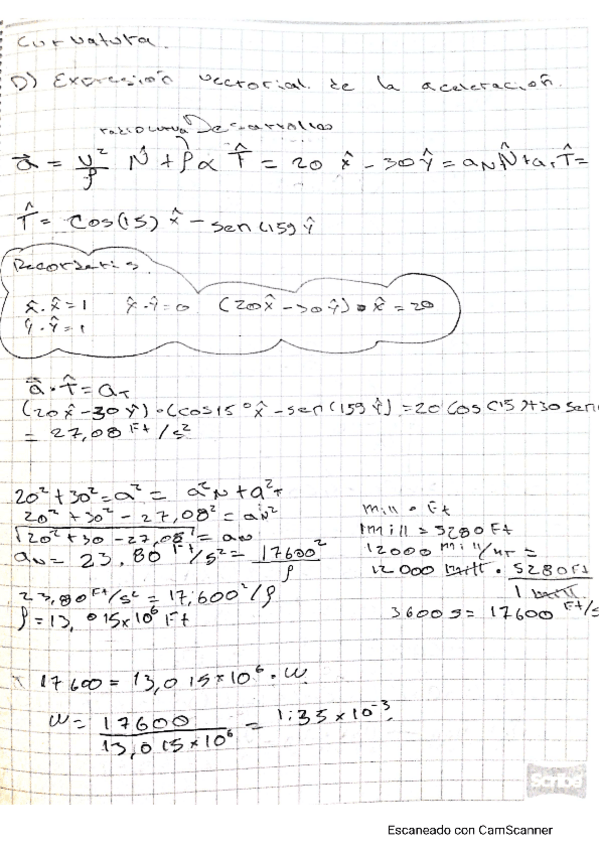 Curvatura.
D) Expresión vectorial de la aceleración.
radio curva Desarrollo
a⃗ = v²/ρ N̂ + ρα T̂ = 20 x̂ - 30 ŷ = a_N N̂ + a_T T̂ =
T̂ = cos(15) x̂ - sen(15) ŷ
Recordatis.
x̂ · x̂ = 1 x̂ · ŷ = 0 (20x̂ - 30ŷ) · x̂ = 20
ŷ · ŷ = 1
a⃗ · T̂ = a_T
(20x̂ - 30ŷ) · (cos 15° x̂ - sen(15) ŷ) = 20 cos(15) + 30 sen(
= 27,08 Ft/s²
20² + 30² = a² = a²_N + a²_T
20² + 30² - 27,08² = a_N²
√20² + 30 - 27,08² = a_N
a_N = 23,80 Ft/s² = 17600²/ρ
23,80 Ft/s² = 17,600²/ρ
ρ = 13,015x10⁶ Ft
mill · Ft
1 mill = 5280 Ft
12000 mill/hr =
12 000 mill · 5280 Ft
1 mill
3600 s = 17600 Ft/s
17600 = 13,015x10⁶ · ω
ω = 17600 / 13,015x10⁶ = 1.35 x 10⁻³
Scribe
Escaneado con CamScanner